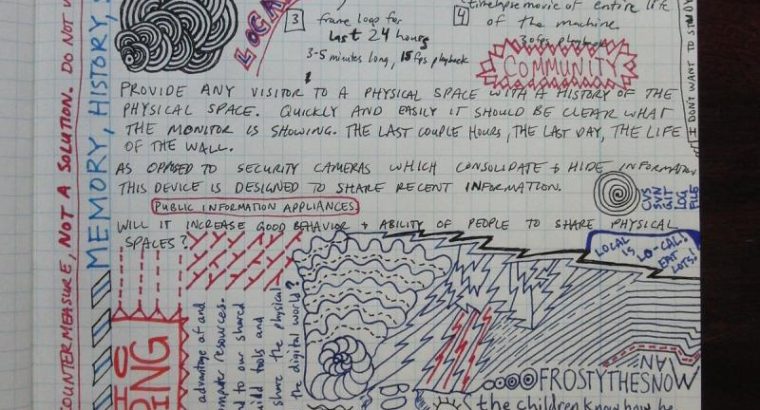 3 frame loop for
last 24 hours
3-5 minutes long, 15 fps playback
4 timelapse movie of entire life
of the machine
30 fps playback
LOCAL
COMMUNITY
PROVIDE ANY VISITOR TO A PHYSICAL SPACE WITH A HISTORY OF THE
PHYSICAL SPACE. QUICKLY AND EASILY IT SHOULD BE CLEAR WHAT
THE MONITOR IS SHOWING. THE LAST COUPLE HOURS, THE LAST DAY, THE LIFE
OF THE WALL.
AS OPPOSED TO SECURITY CAMERAS WHICH CONSOLIDATE + HIDE INFORMATION
THIS DEVICE IS DESIGNED TO SHARE RECENT INFORMATION.
PUBLIC INFORMATION APPLIANCES
WILL IT INCREASE GOOD BEHAVIOR + ABILITY OF PEOPLE TO SHARE PHYSICAL
SPACES?
CVS
SVN
GIT
LOG
FILE
LOCAL
IS LO-CAL!
EAT
LOTS!
I DON'T WANT TO STUDY
COUNTERMEASURE, NOT A SOLUTION. DO NOT
MEMORY, HISTORY,
advantage of and
computer resources.
to our shared
build tools and
share the physical
the digital world?
MAN
FROSTYTHESNOW
the children know how he